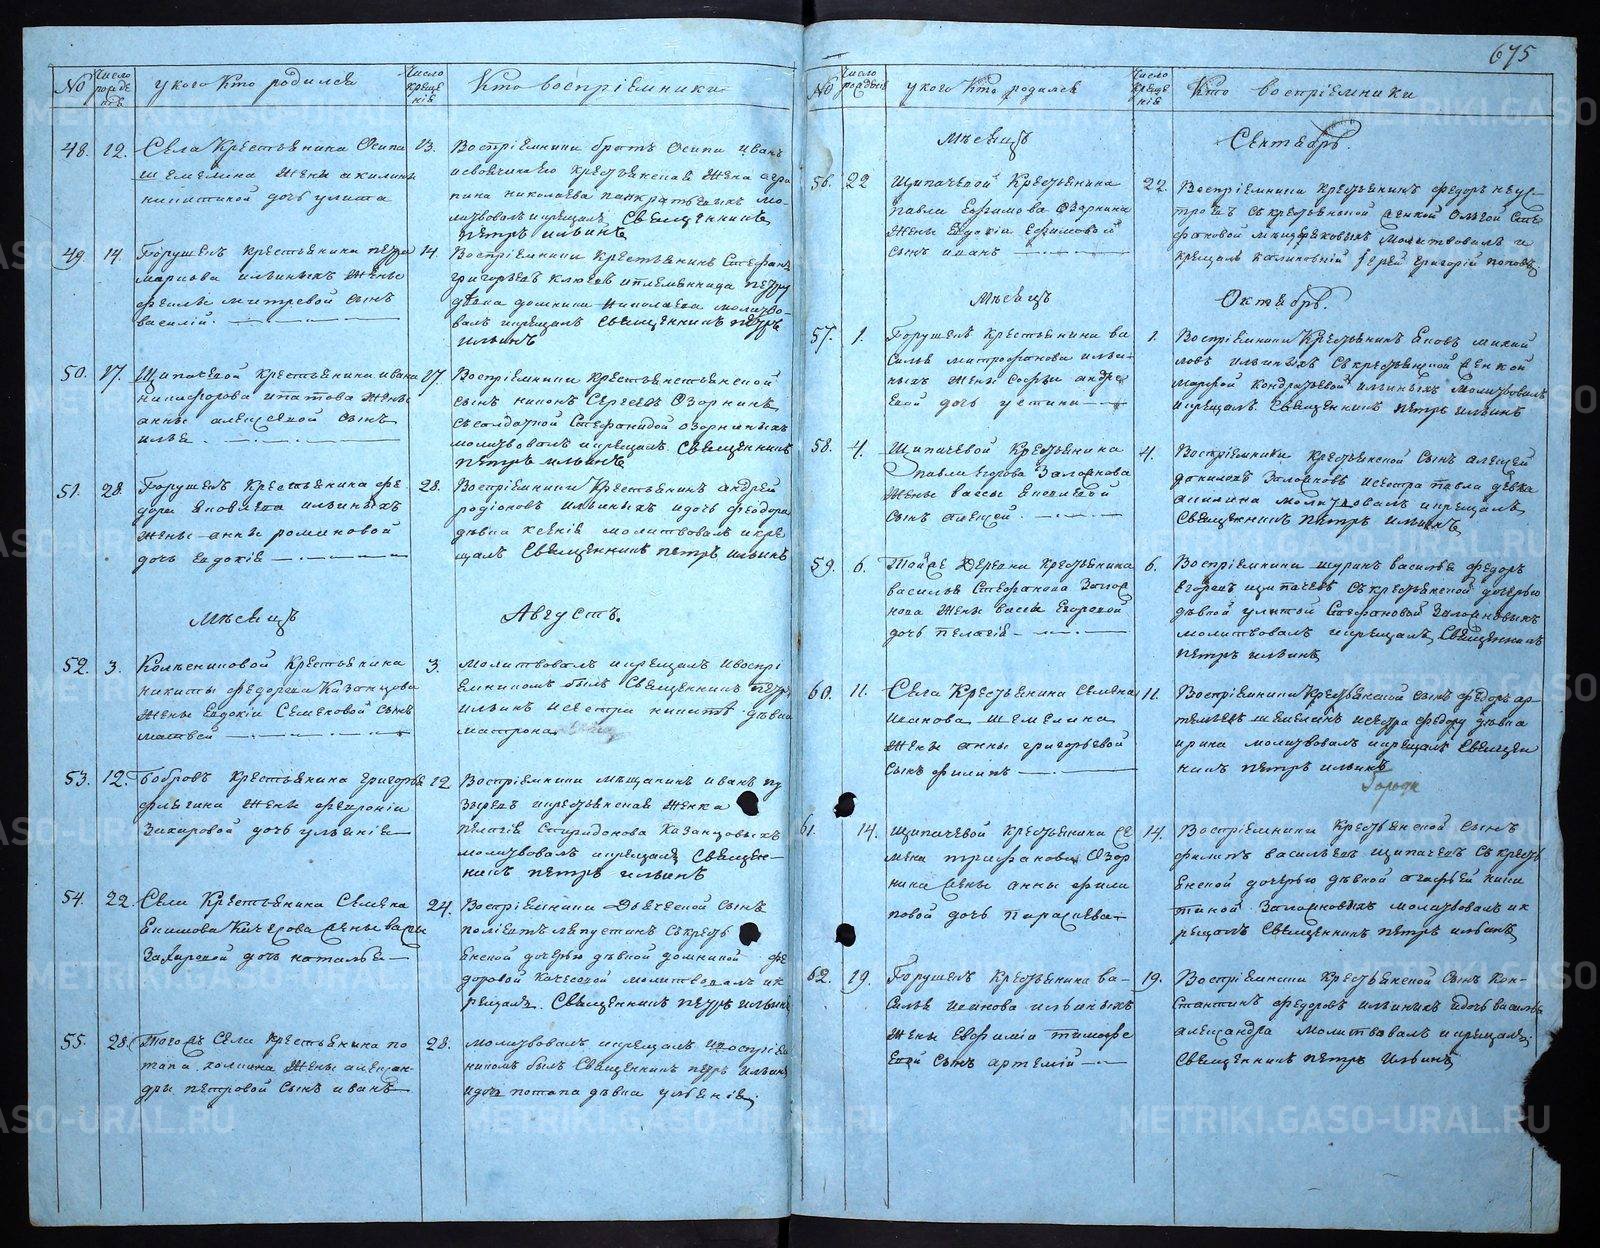 675
№
Число рожденія
у кого кто родился
Число крещенія
Кто воспріемники
48. 12. Села Крестьянина Осипа
Шемелина жены акилины
никитиной дочь улита
13. Воспріемники братъ Осипа иванъ
крестьянская жена агра
пина николаева панкратьевых мо-
литвовалъ и крещалъ Священникъ
петръ ильинъ
49. 14. Горушекъ крестьянина петра
маркова ильиныхъ жены
феклы митревой сынъ
василій.
14. Воспріемники крестьянинъ Стефанъ
григорьевъ ключевъ и племянница петру
девка домники николаева молитво-
валъ и крещалъ Священникъ петръ
ильинъ
50. 17. Щипачевой крестьянина ивана
никифорова ипатова жены
анны алексеевой сынъ
илья.
17. Воспріемники крестьянской
сынъ никонъ Сергеевъ Озорнинъ
съ солдаткой Стефанидой озорниныхъ
молитвовалъ и крещалъ Священникъ
петръ ильинъ
51. 28. Горушекъ крестьянина фе
дора яковлева ильиныхъ
жены анны романовой
дочь евдокія
28. Воспріемники крестьянинъ андрей
родіоновъ ильиныхъ и дочь феодора
девка ксенія молитвовалъ и кре
щалъ Священникъ петръ ильинъ
Мѣсяцъ Августъ.
52. 3. Колясниковой крестьянина
никиты федорова Казанцова
жены Евдокіи Семеновой сынъ
матвей
3. молитвовалъ и крещалъ и воспрі
емникомъ былъ Священникъ петръ
ильинъ и сестра никиты девка
матрона
53. 12. Бобровъ крестьянина григорья
жены февроніи
Захаровой дочь ульянія
12. Воспріемники мещанинъ иванъ пу
зыревъ и крестьянская женка
пелагія Спиридонова Казанцовыхъ
молитвовалъ и крещалъ Священ-
никъ петръ ильинъ
54. 22. Села Крестьянина Семена
Екимова Качесова жены васы
Захаровой дочь наталья
24. Воспріемники Дьяческой сынъ
съ кресть
янской дочерью девкой домникой фе
доровой Качесовой молитвовалъ и к
рещалъ. Священникъ петръ ильинъ
55. 28. Тогожъ Села крестьянина по
тапа жены алексан
дры петровой сынъ иванъ
28. молитвовалъ и крещалъ и воспріем
никомъ былъ Священникъ петръ ильинъ
и дочь потапа девка ульянія.
№
Число рожденія
у кого кто родился
Число крещенія
Кто воспріемники
Мѣсяцъ Сентябрь.
56. 22 Щипачевой Крестьянина
павла Ефимова Озорнина
жены Евдокіи Ефимовой
сынъ иванъ
22. Воспріемники крестьянинъ федоръ неус-
троевъ съ крестьянской женкой Ольгой Сте
фановой молитвовалъ и
крещалъ іерей григорій поповъ.
Мѣсяцъ Октябрь.
57. 1. Горушекъ крестьянина ва
силья митрофанова ильи-
ныхъ жены софьи андре
евой дочь устина
1. Воспріемники Крестьянинъ яковъ михай
ловъ ильиныхъ съ крестьянской женкой
марфой кондратьевой ильиныхъ молитвовалъ
и крещалъ Священникъ петръ ильинъ
58. 4. Щипачевой крестьянина
павла егорова Заложнова
жены вассы
сынъ алексей.
4. Воспріемники крестьянской сынъ алексей
даниловъ и сестра павла девка
акилина молитвовалъ и крещалъ
Священникъ петръ ильинъ
59. 6. Тойже Деревни крестьянина
василья Стефанова
жены васы Егоровой
дочь пелагія
6. Воспріемники шуринъ василья федоръ
Егоровъ щипачевъ съ крестьянской дочерью
девкой улитой Стефановой
молитвовалъ и крещалъ Священникъ
петръ ильинъ
60. 11. Села Крестьянина Семена
иванова шемелина
жены анны григорьевой
сынъ филипъ
11. Воспріемники Крестьянской сынъ федоръ ар-
темьевъ шемелинъ и сестра федору девка
ирина молитвовалъ и крещалъ Священ
никъ петръ ильинъ
61. 14. Щипачевой крестьянина Се
мена трифанова Озор
нина жены анны фили
повой дочь параскева
14. Воспріемники Крестьянской сынъ
филипъ васильевъ щипачевъ съ кресть
янской дочерью девкой агафьей ники
тиной молитвовалъ и к
рещалъ Священникъ петръ ильинъ
62. 19. Горушекъ Крестьянина ва-
силья иванова ильиныхъ
жены Евфиміи тимофе
евой сынъ артемій
19. Воспріемники крестьянской сынъ Кон-
стантинъ федоровъ ильиныхъ и дочь василья
александра молитвовалъ и крещалъ
Священникъ петръ ильинъ
METRIKI.GASO-URAL.RU